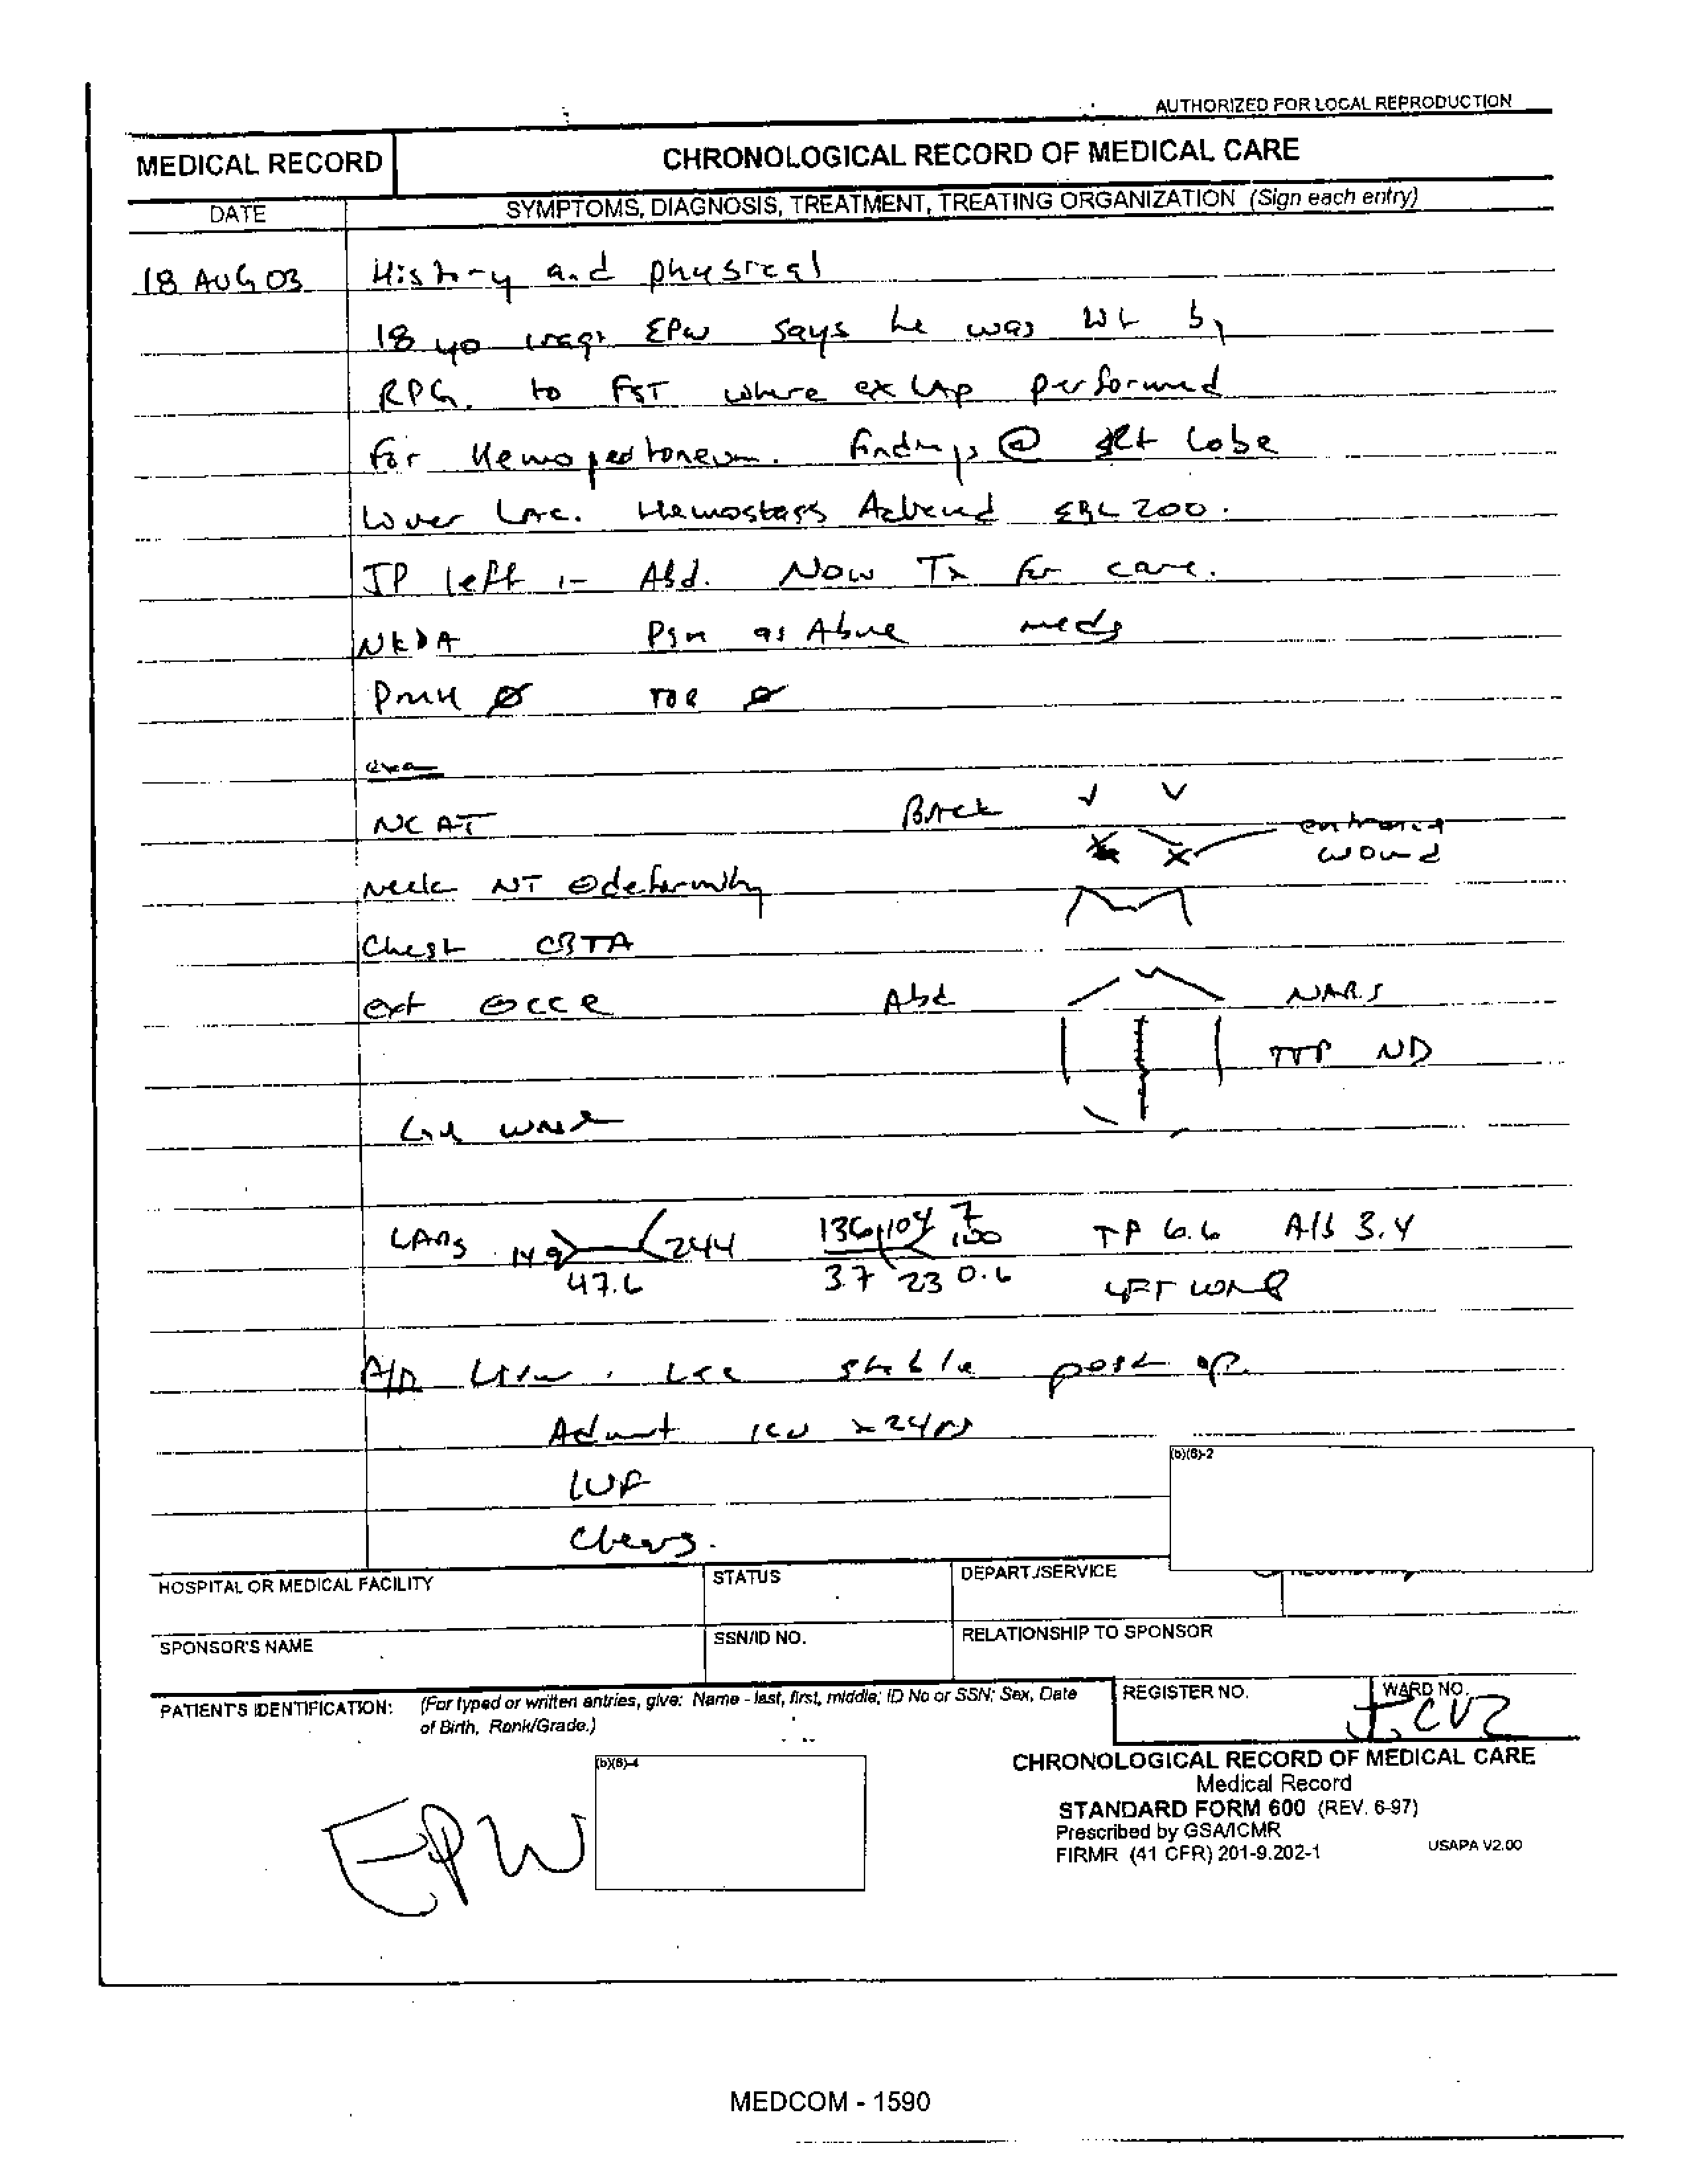 AUTHORIZED FOR LOCAL REPRODUCTION
MEDICAL RECORD
CHRONOLOGICAL RECORD OF MEDICAL CARE
DATE
SYMPTOMS, DIAGNOSIS, TREATMENT, TREATING ORGANIZATION (Sign each entry)
18 AUG 03 History and physical
18 yo Iraqi EPW says he was
RPG. to FST where ex Lap performed
for Hemoperitoneum. findings @ lobe
Liver Lac. Hemostasis Achieved EBL 200.
JP left in Abd. Now Tx for care.
NKDA PSH as Above meds
PMH Ø Ø
exam
NCAT Back entrance
wound
Neck NT ⊖deformity
Chest CBTA
ext ⊖CCE Abd NABS
TTP ND
LABS 14.9 244 136 104 7 100 TP 6.6 Alb 3.4
47.6 3.7 23 0.6 LFT WNL
A/P Liver Lac stable post op.
Admit ICU x 24
IVF
(b)(6)-2
HOSPITAL OR MEDICAL FACILITY
STATUS
DEPART./SERVICE
SPONSOR'S NAME
SSN/ID NO.
RELATIONSHIP TO SPONSOR
PATIENT'S IDENTIFICATION: (For typed or written entries, give: Name - last, first, middle; ID No or SSN; Sex, Date
of Birth, Rank/Grade.)
REGISTER NO.
WARD NO.
ICU2
(b)(6)-4
EPW
CHRONOLOGICAL RECORD OF MEDICAL CARE
Medical Record
STANDARD FORM 600 (REV. 6-97)
Prescribed by GSA/ICMR
FIRMR (41 CFR) 201-9.202-1
USAPA V2.00
MEDCOM - 1590